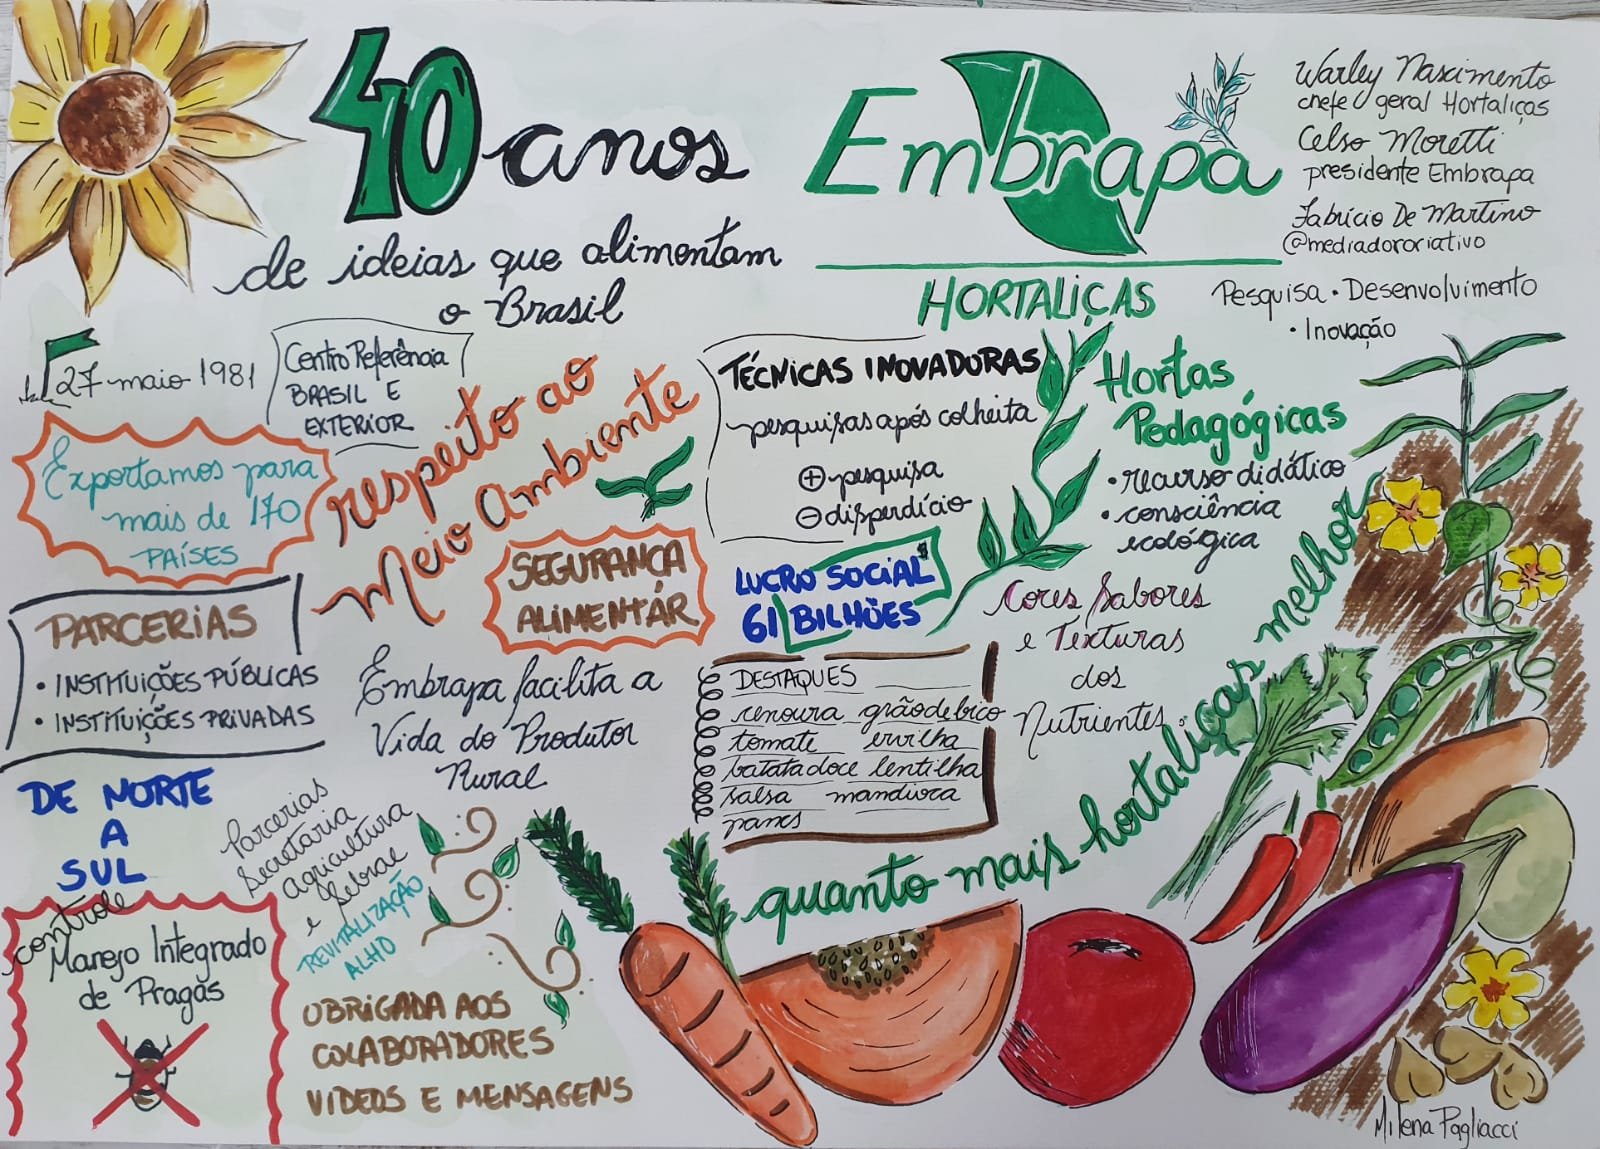 40 anos
de ideias que alimentam
o Brasil
Embrapa
HORTALIÇAS
Warley Nascimento
chefe geral Hortaliças
Celso Moretti
presidente Embrapa
Fabrício De Martino
@mediadorcriativo
Pesquisa • Desenvolvimento
• Inovação
27 maio 1981
Centro Referência
BRASIL E
EXTERIOR
Exportamos para
mais de 170
PAÍSES
respeito ao
Meio Ambiente
SEGURANÇA
ALIMENTÁR
TÉCNICAS INOVADORAS
pesquisas após colheita
+ pesquisa
- disperdício
LUCRO SOCIAL
61 BILHÕES
Hortas
Pedagógicas
• recurso didático
• consciência
ecológica
Cores Sabores
e Texturas
dos
Nutrientes.
PARCERIAS
• INSTITUIÇÕES PÚBLICAS
• INSTITUIÇÕES PRIVADAS
Embrapa facilita a
Vida do Produtor
Rural
DESTAQUES
cenoura grão de bico
tomate ervilha
batata doce lentilha
salsa mandioca
pancs
quanto mais hortaliças melhor
DE NORTE
A
SUL
Parcerias
Secretaria
agricultura
e Sebrae
REVITALIZAÇÃO
ALHO
controle
Manejo Integrado
de Pragas
OBRIGADA AOS
COLABORADORES
VIDEOS E MENSAGENS
Milena Pagliacci